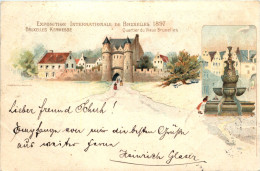 Exposition Internationale de Bruxelles 1897
Bruxelles Kermesse
Quartier du Vieux Bruxelles
Lieber Freund
Empfange von mir die besten Grüße
aus weiter Ferne
Heinrich Glaser